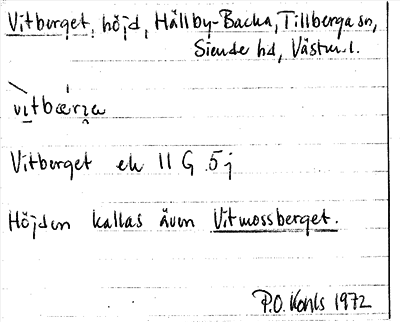 Vitberget, höjd, Hällby-Backa, Tillberga sn,
Siende hd, Västml.
Vitberget ek 11 G 5j
Höjden kallas även Vitmossberget.
P.O. Kohls 1972